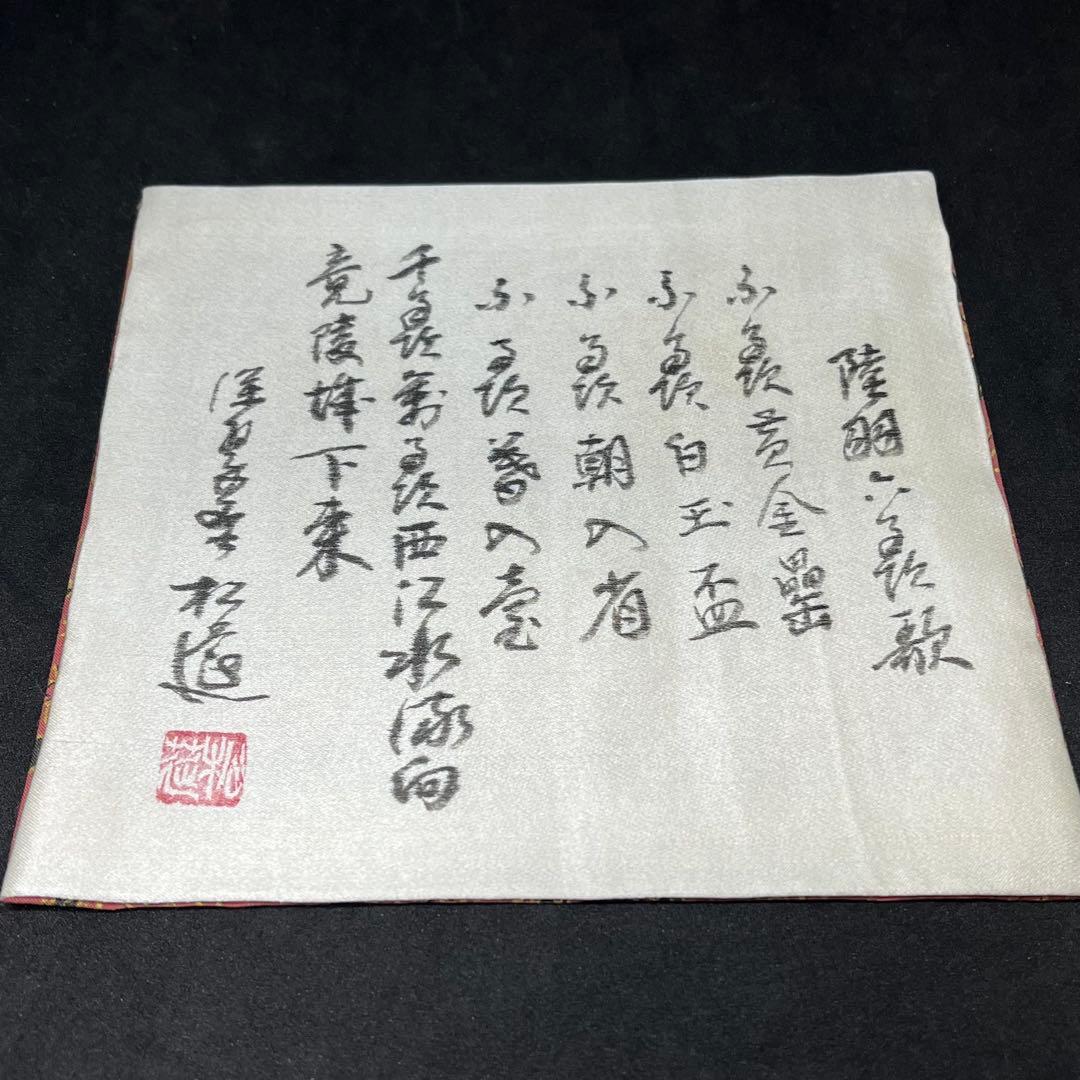 陸羽六羨歌
不羨黃金罍
不羨白玉盃
不羨朝入省
不羨暮入臺
千羨萬羨西江水流向
竟陵城下來
松